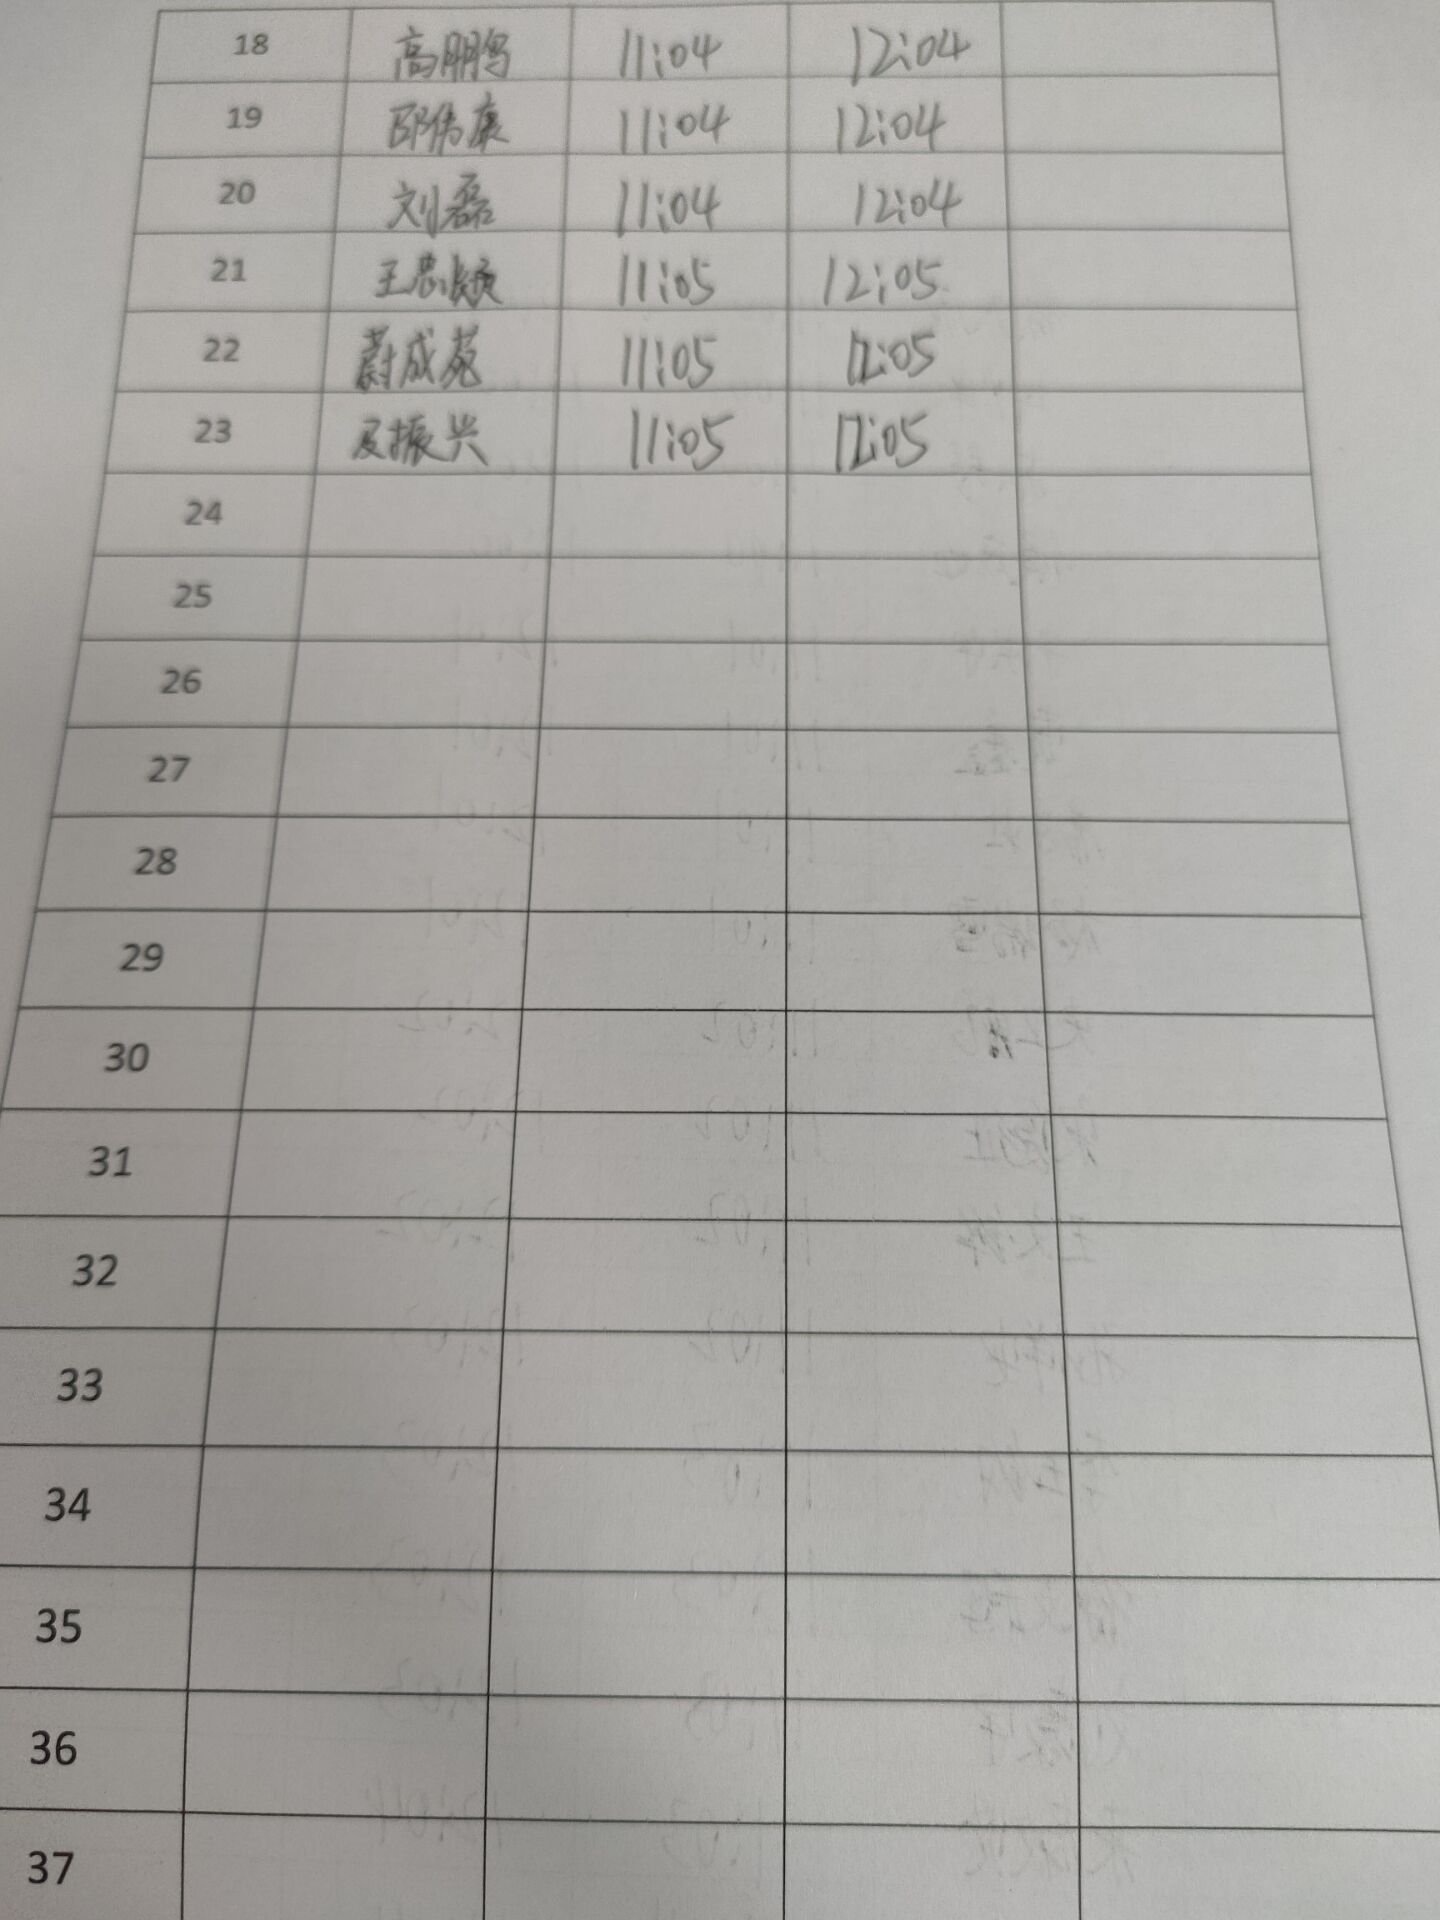 18 高鹏 11:04 12:04
19 邵伟康 11:04 12:04
20 刘磊 11:04 12:04
21 王思媛 11:05 12:05
22 蔚成苑 11:05 12:05
23 及振兴 11:05 12:05
24
25
26
27
28
29
30
31
32
33
34
35
36
37